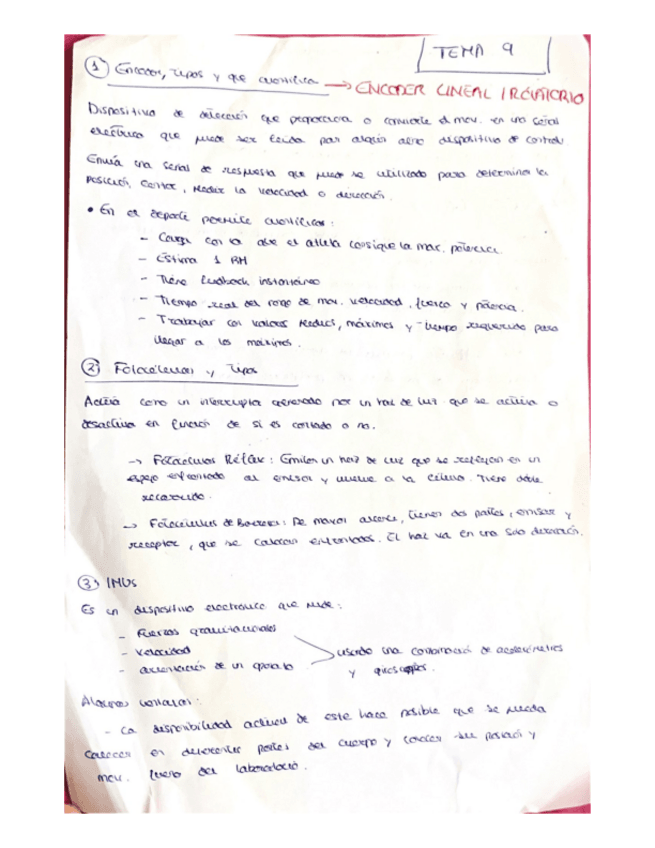 TEMA 9
① Encoder, tipos y que cuantifica → ENCODER LINEAL / ROTATORIO
Dispositivo de detección que proporciona o convierte el mov. en una señal
eléctrica que puede ser leída por algún otro dispositivo de control
Envía una señal de respuesta que puede ser utilizado para determinar la
posición, contar, medir la velocidad o dirección.
• En el deporte permite cuantificar:
- Carga con la que el atleta consigue la max. potencia.
- Estima 1 RM
- Tiene feedback instantáneo
- Tiempo real del rango de mov. velocidad, fuerza y potencia.
- Trabajar con valores medios, máximos y tiempo requerido para
llegar a los máximos.
② Fotocélulas y Tipos
Actúa como un interruptor generado por un haz de luz que se activa o
desactiva en función de si es cortado o no.
→ Fotocélulas Réflex: Emiten un haz de luz que se reflejan en un
espejo enfrentado al emisor y vuelve a la célula. Tiene doble
recorrido.
→ Fotocélulas de Barrera: De mayor alcance, tienen dos partes, emisor y
receptor, que se colocan enfrentados. El haz va en una sola dirección.
③ IMUs
Es un dispositivo electrónico que mide:
- Fuerzas gravitacionales
- Velocidad
- orientación de un aparato
usando una combinación de acelerómetros
y giroscopios.
Algunas ventajas:
- La disponibilidad actual de este hace posible que se pueda
colocar en diferentes partes del cuerpo y conocer su posición y
mov. fuera del laboratorio.